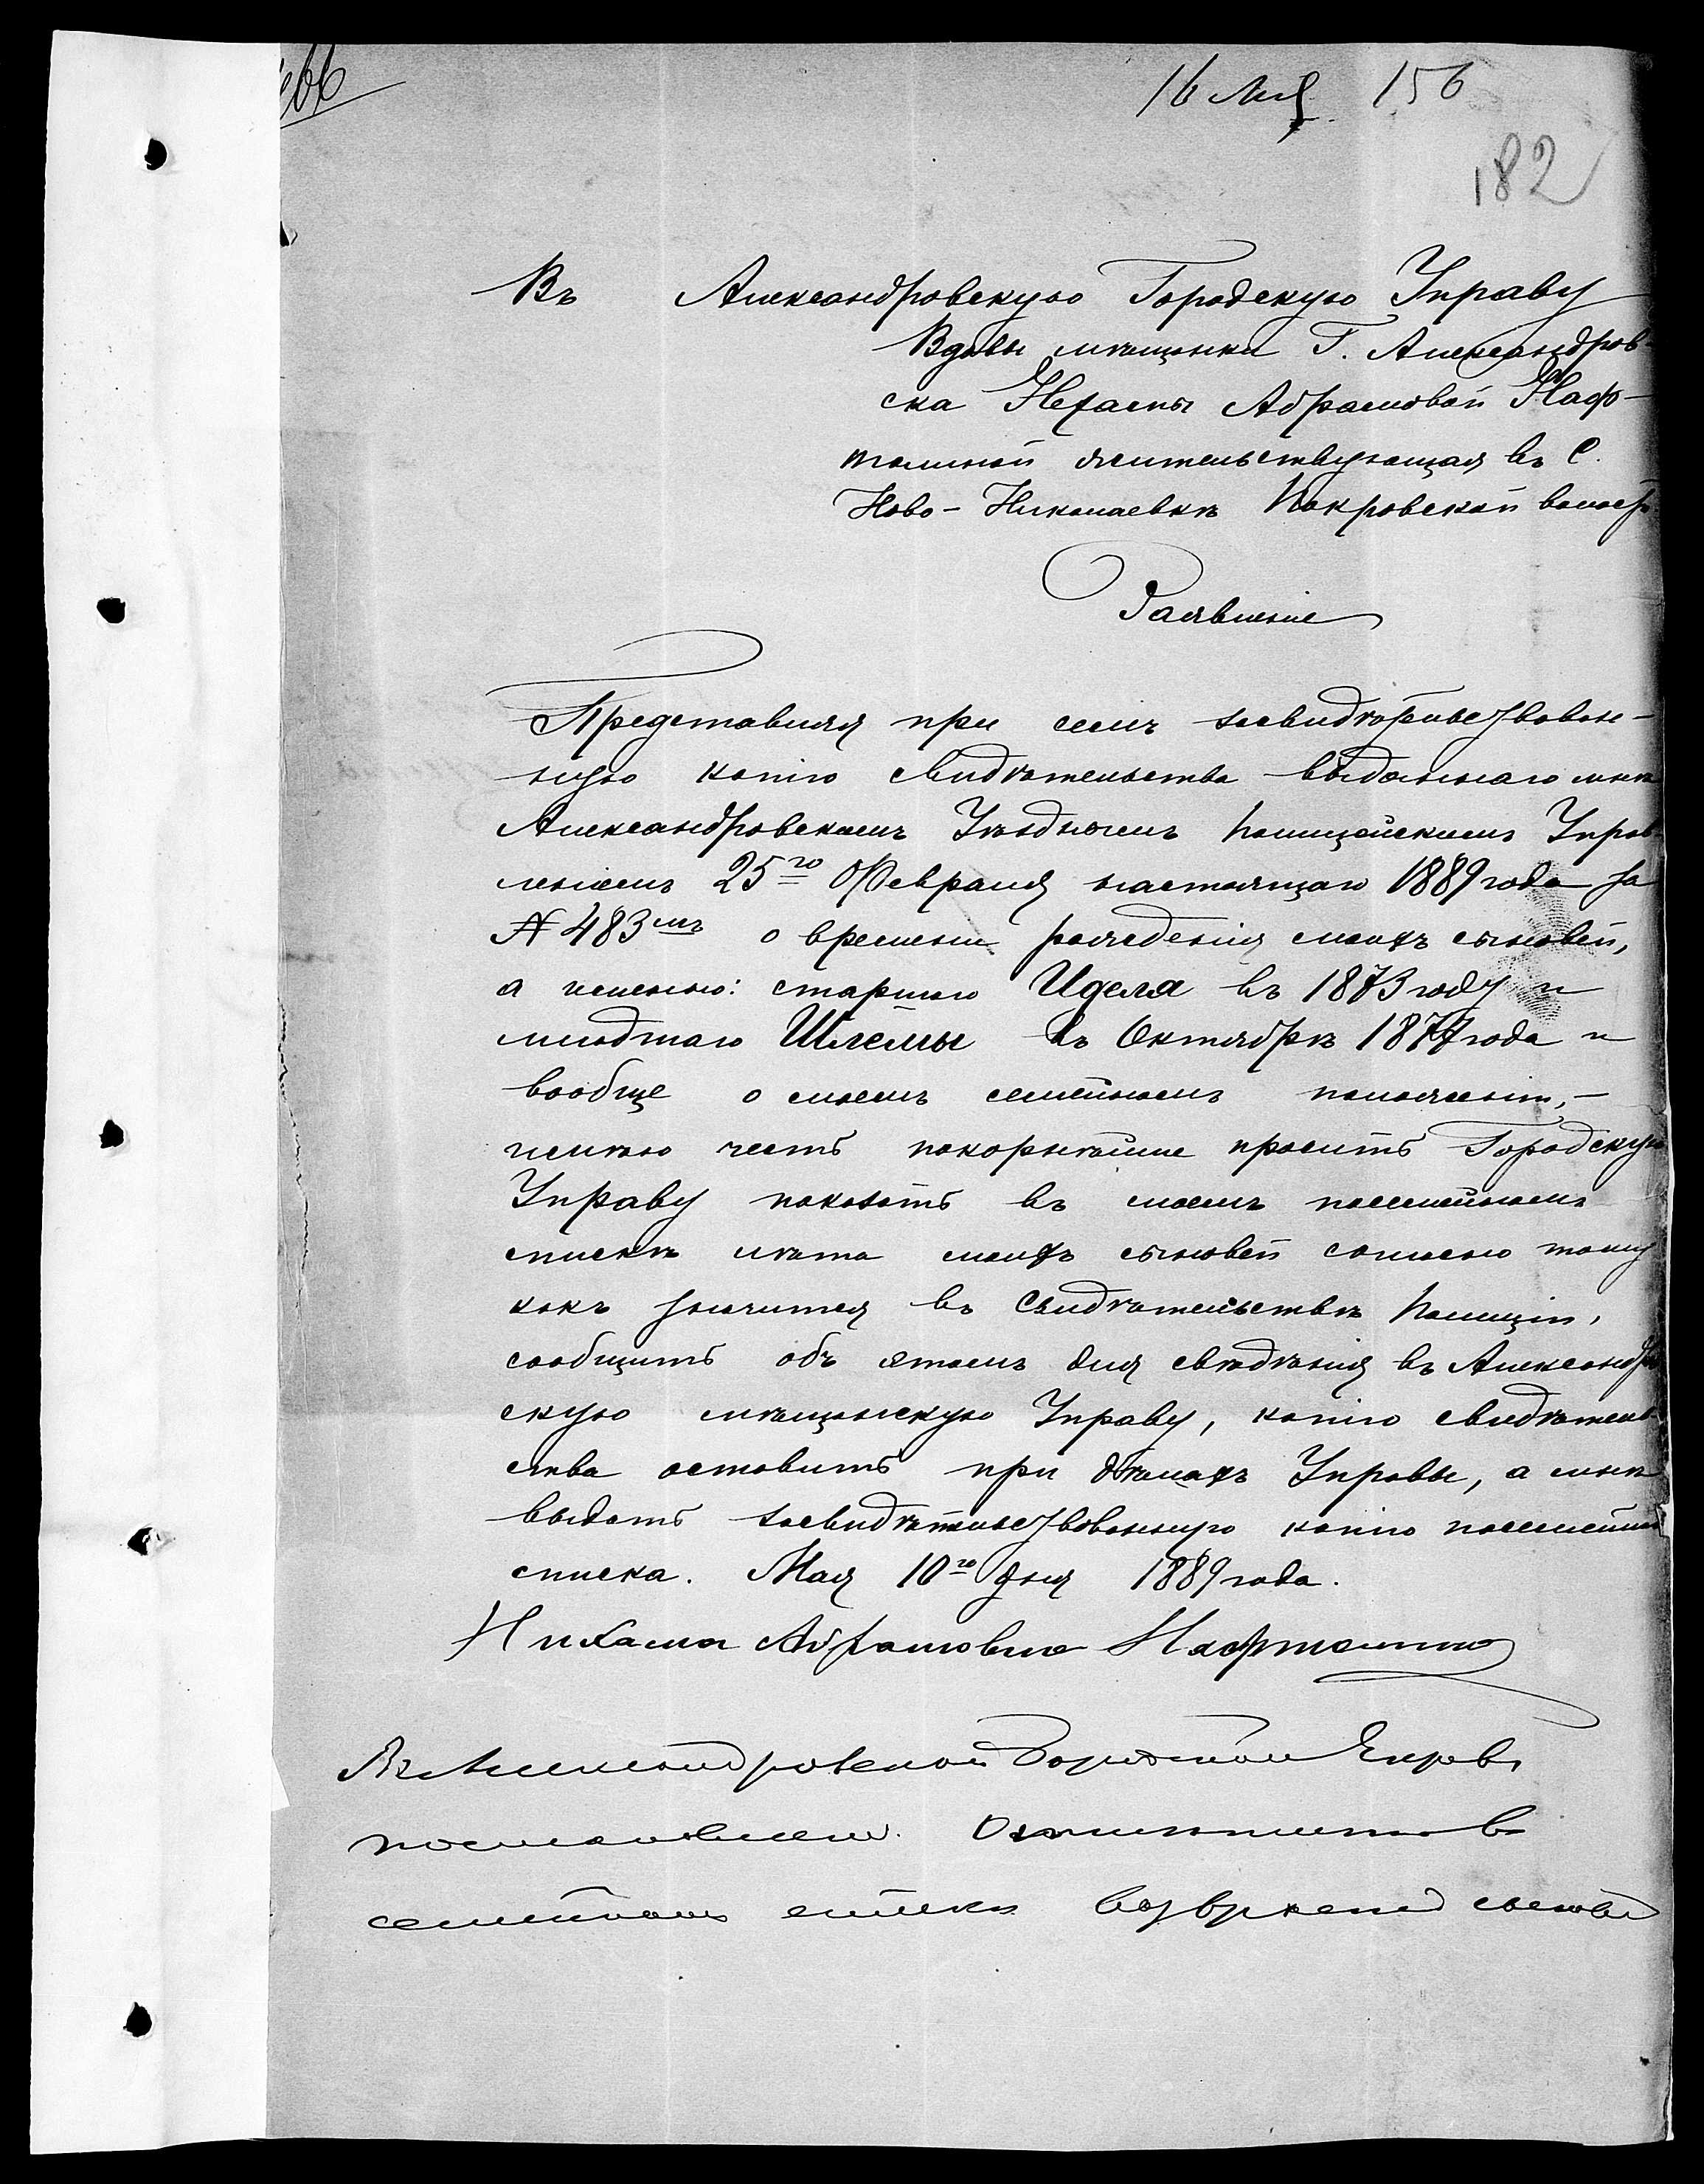 16 Мая 156
182
Въ Александровскую Городскую Управу
Вдовы мѣщанки Г. Александров-
ска Нехамы Абрамовой Наф-
талиной жительствующая въ С.
Ново-Николаевкѣ Покровской волост
Заявленіе
Представляя при семъ засвидѣтельствован-
ную копію свидѣтельства выданнаго мнѣ
Александровскимъ Уѣзднымъ Полицейскимъ Управ-
леніемъ 25го Февраля настоящаго 1889 года за
№ 483мъ о времени рожденія моихъ сыновей,
а именно: старшаго Иделя въ 1873 году и
младшаго Шлемы въ Октябрѣ 1877 года и
вообще о моемъ семейномъ положеніи, –
имѣю честь покорнѣйше просить Городскую
Управу показать въ моемъ посемейномъ
спискѣ лѣта моихъ сыновей согласно тому
какъ значится въ Свидѣтельствѣ Полиціи,
сообщить объ этомъ для свѣдѣнія въ Александров
скую мѣщанскую Управу, копію свидѣтель-
ства оставить при дѣлахъ Управы, а мнѣ
выдать засвидѣтельствованную копію посемейна
списка. Мая 10го дня 1889 года.
Нихама Абрамовна Нафталина
Въ Александровской Городской Управ
семейномъ списки возврастъ сыновей